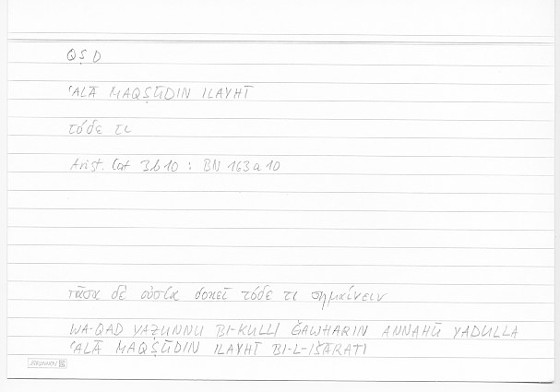 QṢD
ʿALĀ MAQṢŪDIN ILAYHI
τόδε τι
Arist. Cat 3b10 : BN 163a10
πᾶσα δὲ οὐσία δοκεῖ τόδε τι σημαίνειν
WA-QAD YAẒUNNU BI-KULLI ǦAWHARIN ANNAHŪ YADULLA
ʿALĀ MAQṢŪDIN ILAYHI BI-L-IŠĀRATI